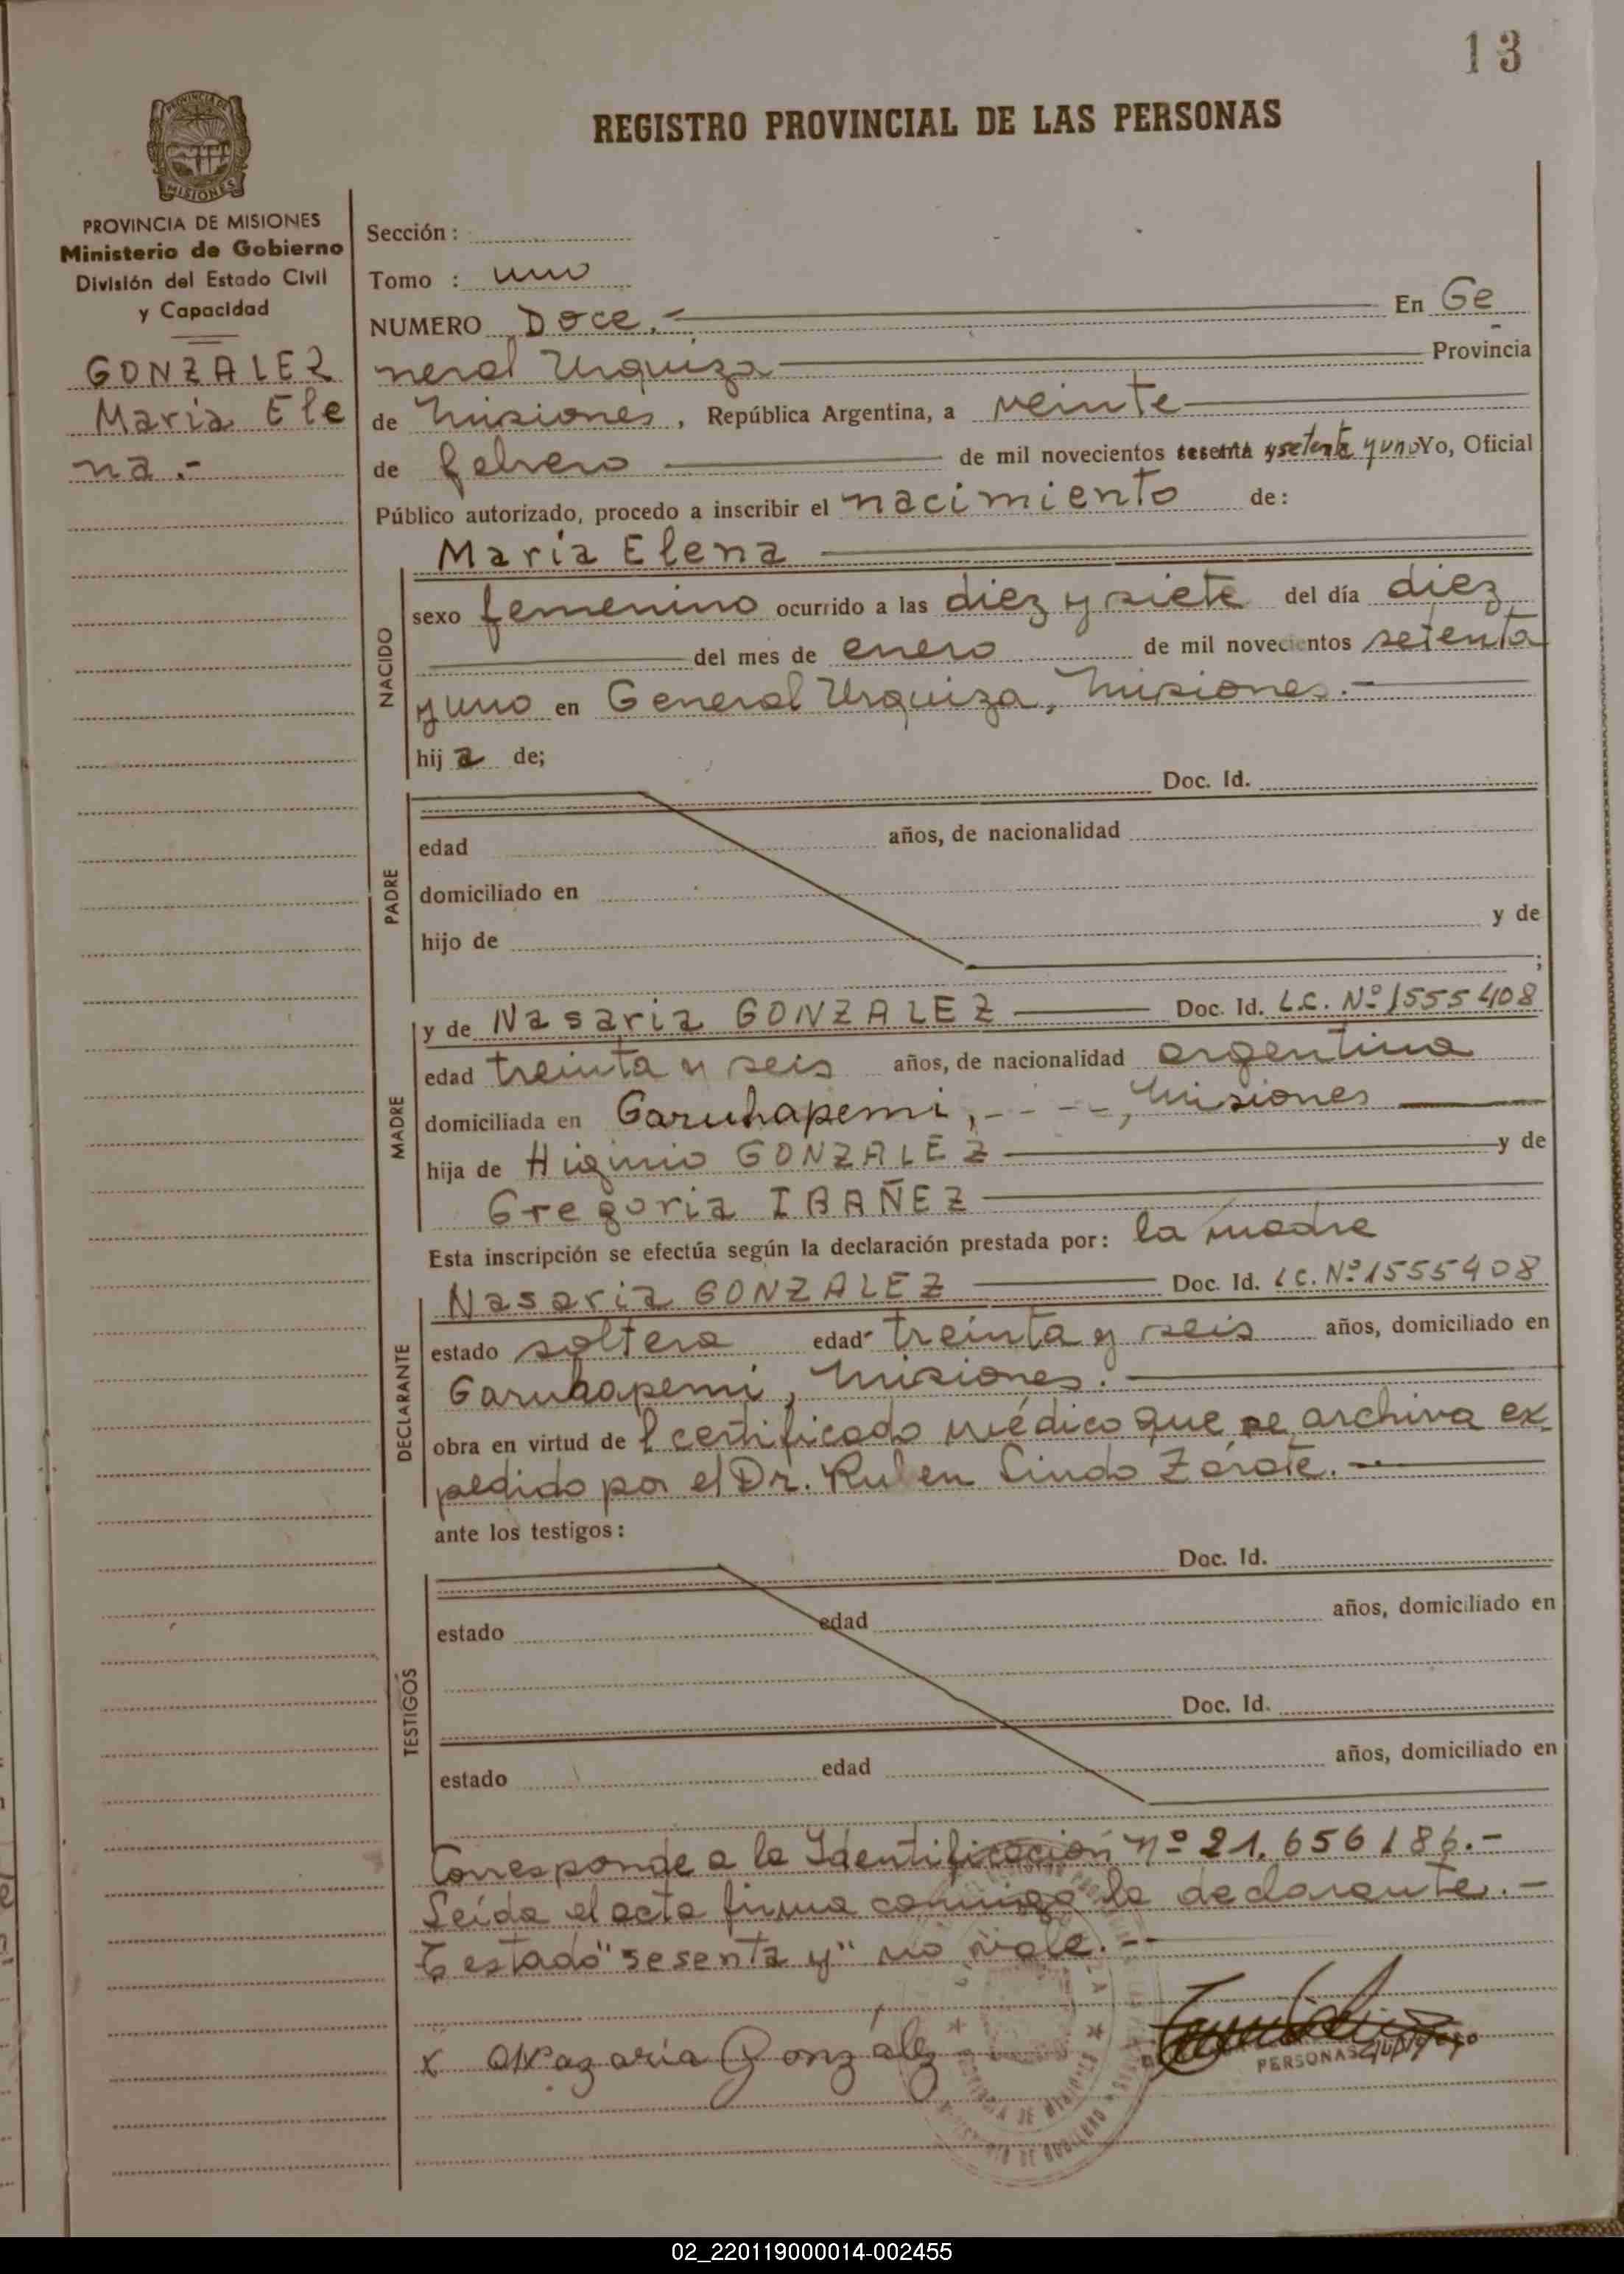 13
REGISTRO PROVINCIAL DE LAS PERSONAS
PROVINCIA DE MISIONES
Ministerio de Gobierno
División del Estado Civil
y Capacidad
GONZALEZ
Maria Ele
na.-
Sección :
Tomo : uno
NUMERO Doce.- En Ge
neral Urquiza Provincia
de Misiones, República Argentina, a veinte
de febrero de mil novecientos sesenta y setenta y uno Yo, Oficial
Público autorizado, procedo a inscribir el nacimiento de:
NACIDO
María Elena
sexo femenino ocurrido a las diez y siete del día diez
del mes de enero de mil novecientos setenta
y uno en General Urquiza, Misiones.-
hij a de;
PADRE
Doc. Id.
edad años, de nacionalidad
domiciliado en
hijo de y de
;
MADRE
y de Nasaria GONZALEZ Doc. Id. L.C. Nº 1555408
edad treinta y seis años, de nacionalidad argentina
domiciliada en Garuhapemi, - - - -, Misiones
hija de Higinio GONZALEZ y de
Gregoria IBAÑEZ
Esta inscripción se efectúa según la declaración prestada por: la madre
DECLARANTE
Nasaria GONZALEZ Doc. Id. L.C. Nº 1555408
estado soltera edad treinta y seis años, domiciliado en
Garuhapemi, Misiones.-
obra en virtud de l certificado médico que se archiva ex
pedido por el Dr. Ruben Lindo Zárate.-
ante los testigos:
TESTIGOS
Doc. Id.
estado edad años, domiciliado en
Doc. Id.
estado edad años, domiciliado en
Corresponde a la Identificación nº 21.656186.-
Leída el acta firma conmigo la declarante.-
Testado "sesenta y" no vale.-
x Nazaria Gonzalez
PERSONAS
02_220119000014-002455